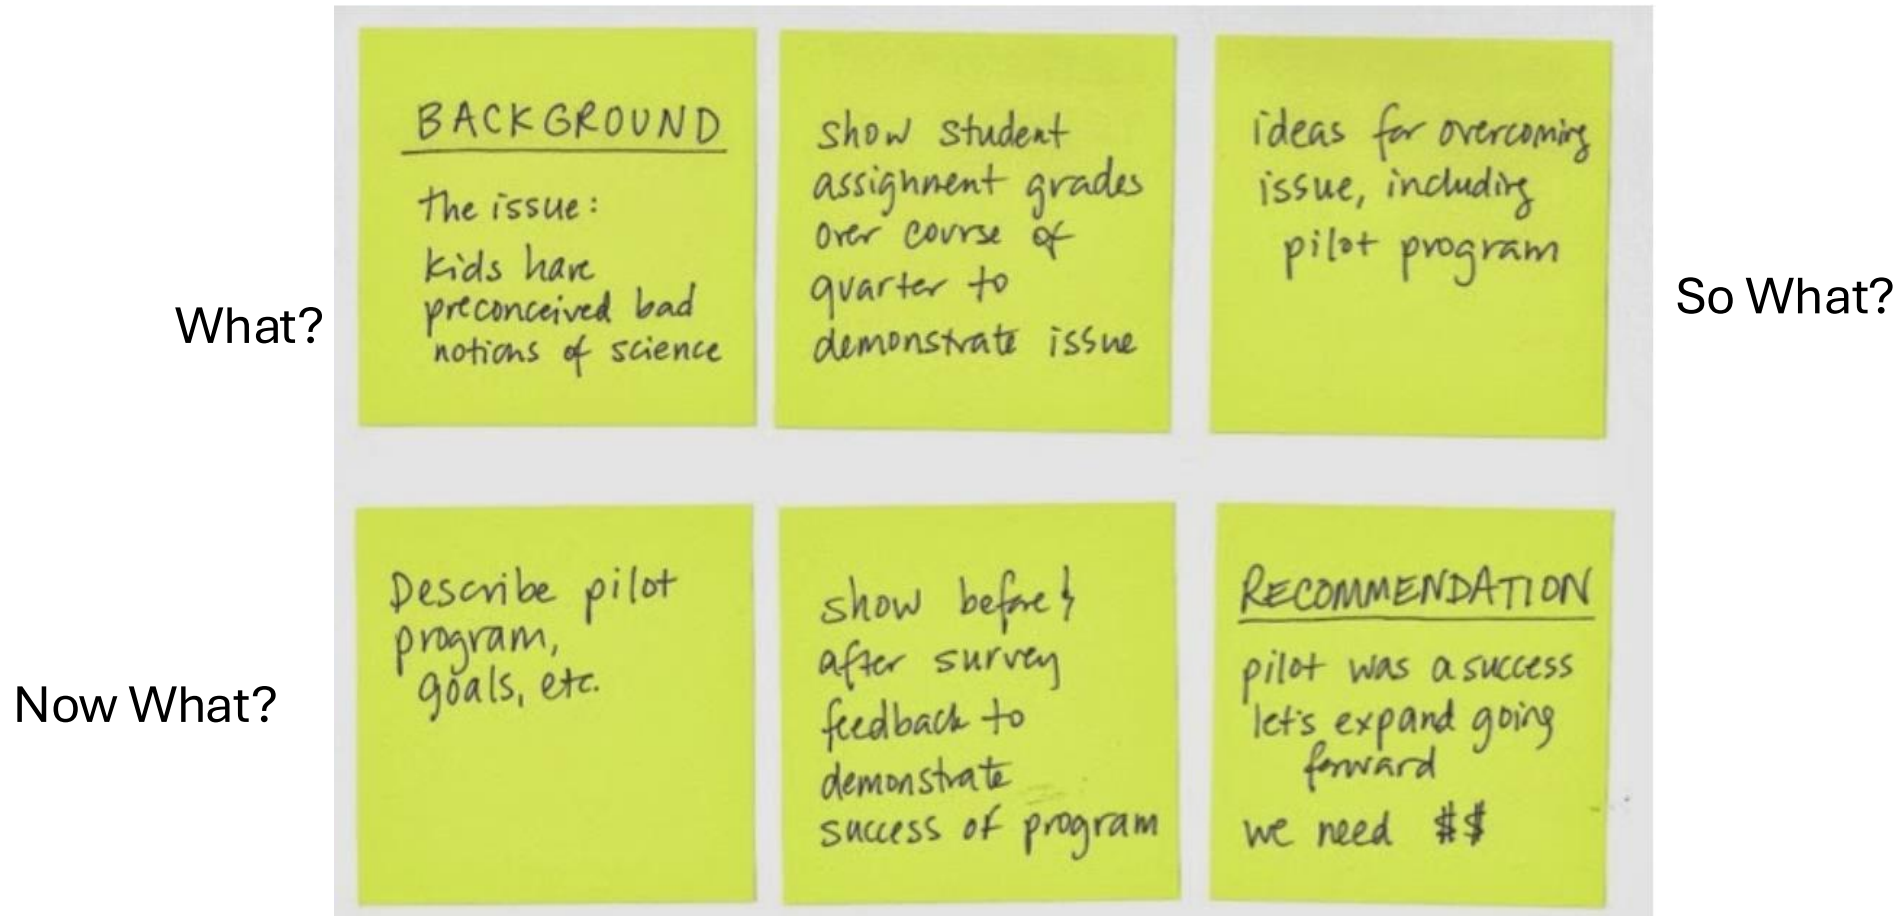 BACKGROUND
the issue:
kids have
preconceived bad
notions of science
show student
assignment grades
over course of
quarter to
demonstrate issue
ideas for overcoming
issue, including
pilot program
What?
So What?
Describe pilot
program,
goals, etc.
show before &
after survey
feedback to
demonstrate
success of program
RECOMMENDATION
pilot was a success
let's expand going
forward
we need $$
Now What?